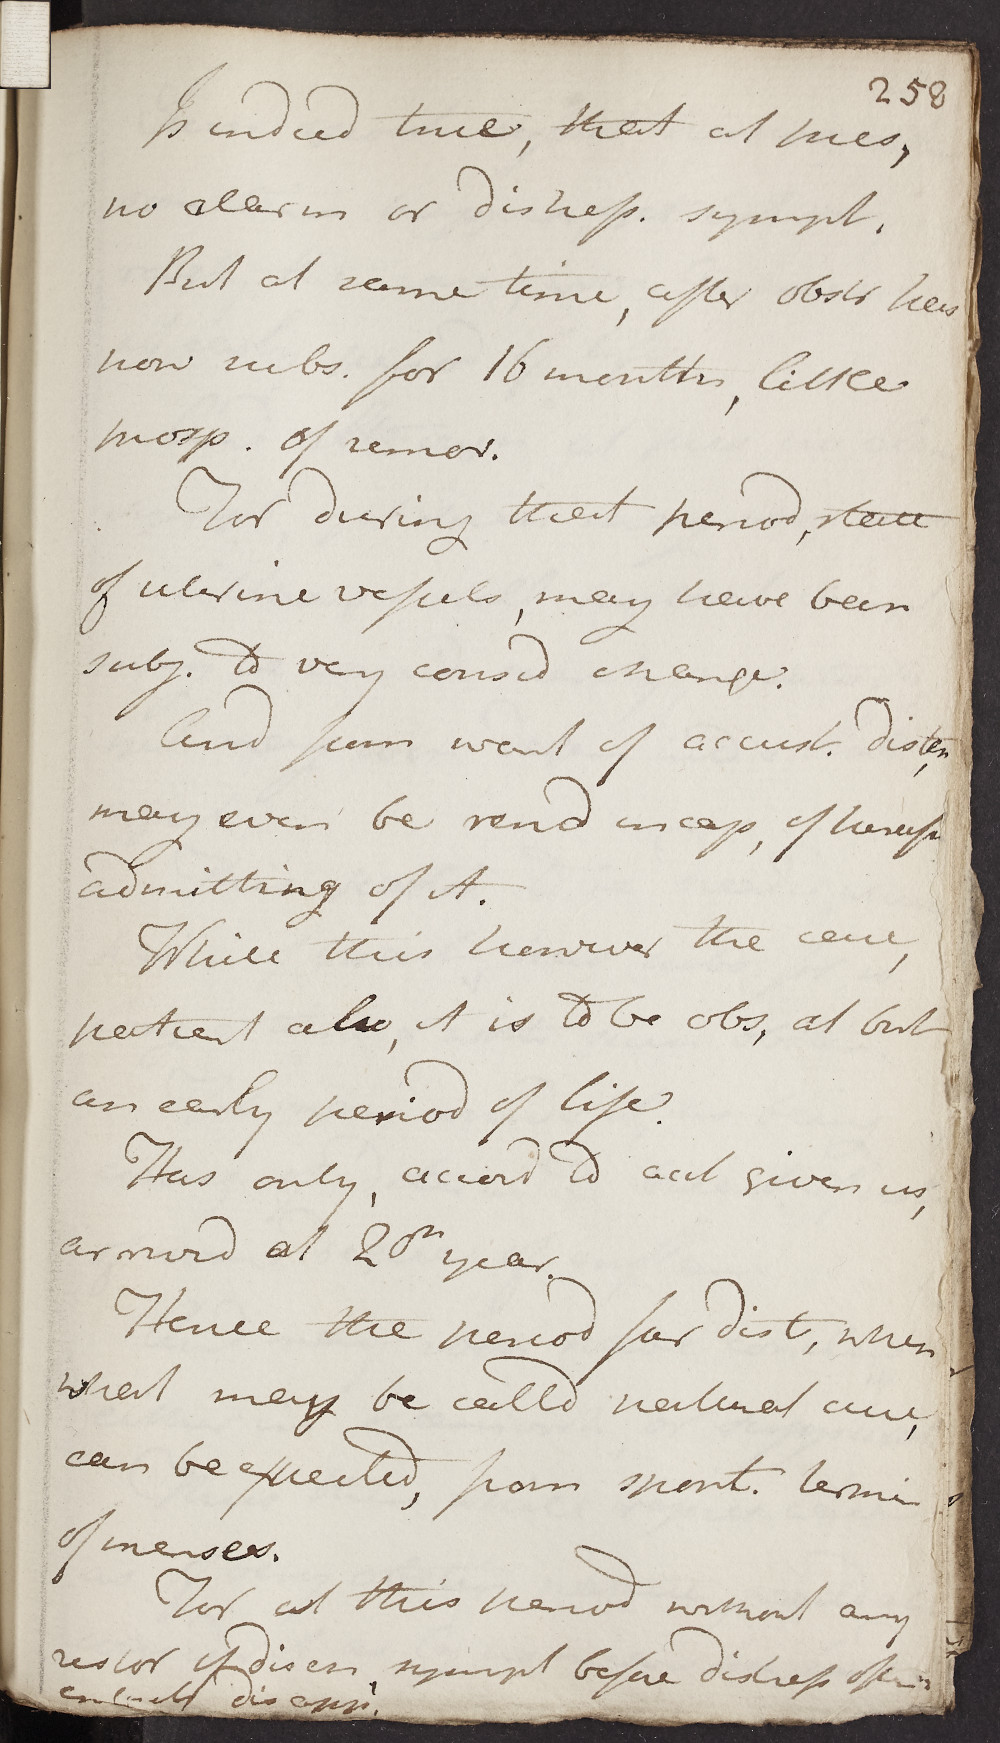 258
Is indeed true, that at pres,
no alarm or distress. sympt.
But at same time, after obstr has
now subs. for 16 months, little
prosp. of remov.
For during that period, state
of uterine vessels, may have been
subj. to very consid change.
And from want of accust. disten,
may even be rend incap, of hereaft
admitting of it.
While this however the case,
patient also, it is to be obs, at but
an early period of life.
Has only, accord to acct given us,
arrived at 28th year.
Hence the period far dist, when
what may be calld natural cure,
can be expected, from spont. termin
of menses.
For at this period without any
restor of discn sympt before distress often
entirely disapp.